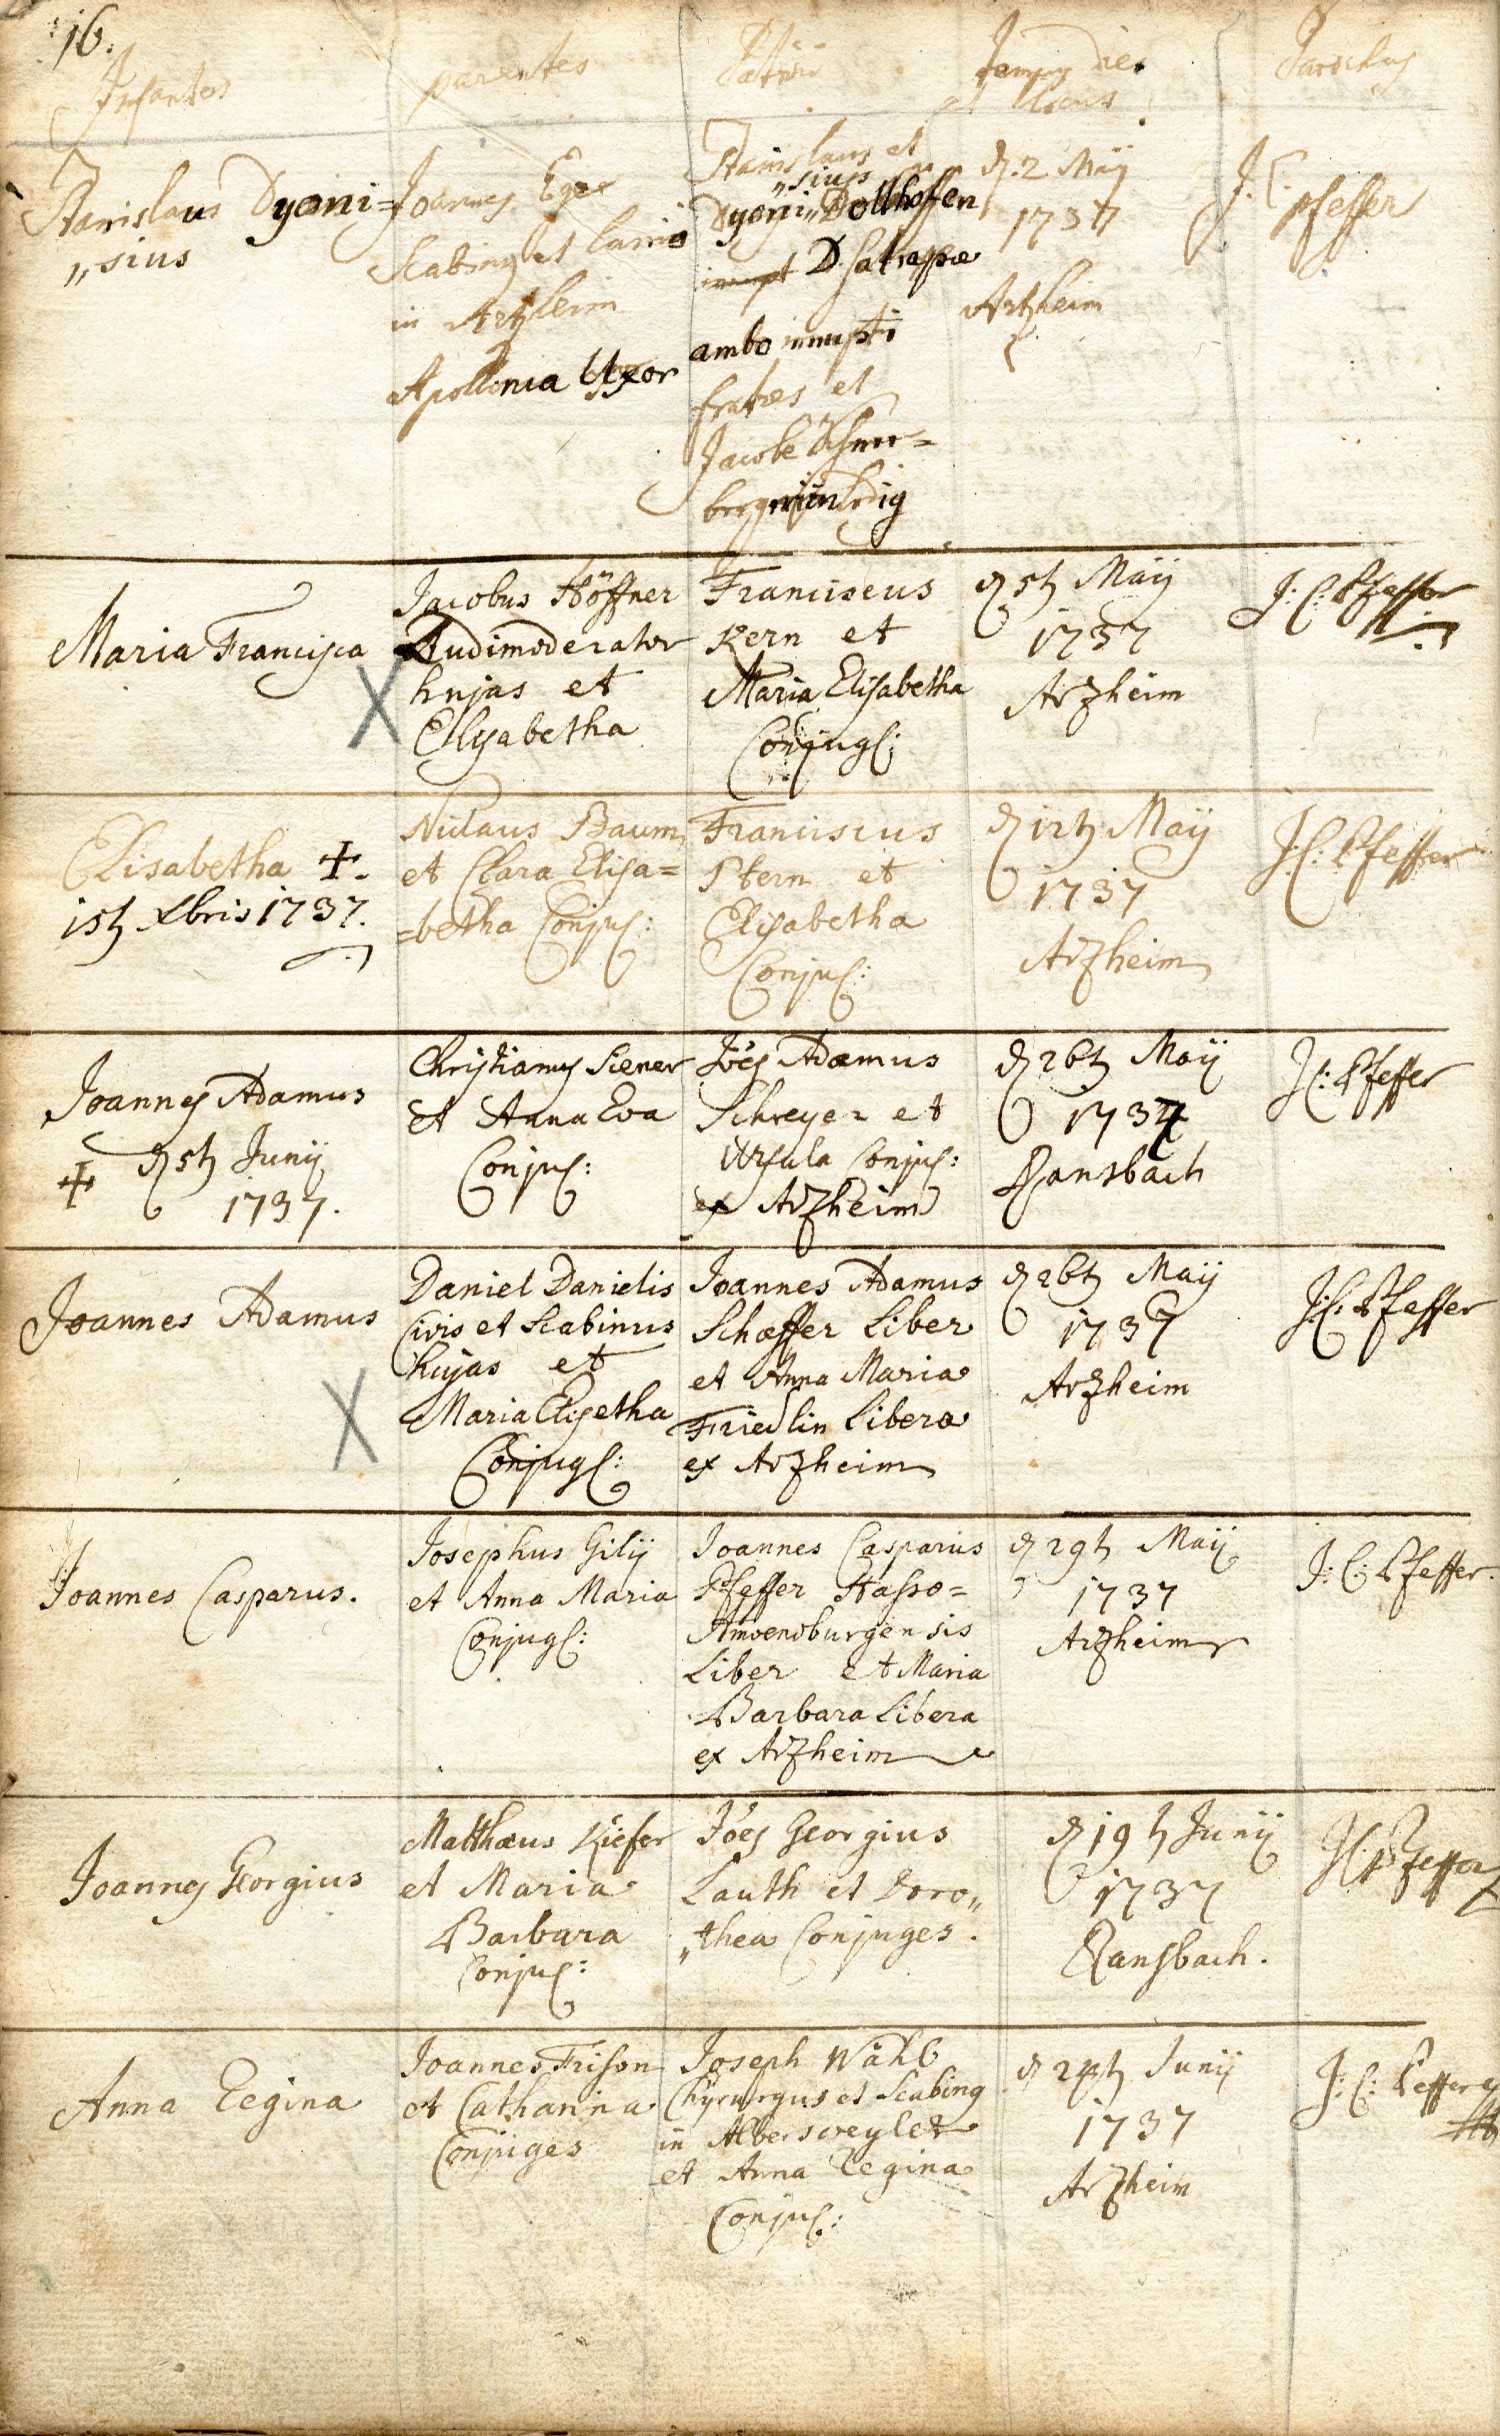 16.
Infantes
parentes
Patrini
Tempus Dies
et locus
Parochus
Stanislaus Dyoni=
„sius
Joannes Eger
Scabinus et lanio
in Artzheim
Apollonia Uxor
Stanislaus et
„sius
Dyoni„ Dollhoffen
D. Satrapæ
ambo innupti
fratres et
Jacobe Schner=
bergerin ledig
d. 2 Maÿ
1737
Artzheim
J. C.
pfeffer
Maria Francisca
Jacobus Höffner
Ludimoderator
hujas et
Elysabetha
Franciscus
Kern et
Maria Elisabetha
Conjug:
d 5t Maÿ
1737
Arzheim
J: C: Pfeffer
Elisabetha +.
15t Xbris 1737.
Niclaus Baum
et Clara Elisa=
=betha Conjug:
Franciscus
Stern et
Elisabetha
Conjug:
d 12t Maÿ
1737
Arzheim
J: C: Pfeffer
Joannes Adamus
+ d 5t Junÿ
1737.
Christianus Siener
et Anna Eva
Conjug:
Jöes Adamus
Schreyer et
Ursula Conjug:
ex Arzheim
d 26t Maÿ
1737
Ransbach
J C: Pfeffer
Joannes Adamus
Daniel Danielis
Civis et Scabinus
hujas et
Maria Elisetha
Conjug:
Joannes Adamus
Schæffer Liber
et Anna Maria
Friedlin Libera
ex Arzheim
d 26t Maÿ
1737
Arzheim
J: C: Pfeffer
Joannes Casparus.
Josephus Gilÿ
et Anna Maria
Conjug:
Joannes Casparus
Pfeffer Hasso=
Amoenoburgensis
Liber et Maria
Barbara Libera
ex Arzheim
d 29t Maÿ
1737
Arzheim
J: C: Pfeffer.
Joannes Georgius
Matthæus Kiefer
et Maria
Barbara
Conjug:
Jöes Georgius
Lauth et Doro„
„thea Conjuges.
d 19t Junÿ
1737
Ransbach.
J C Pfeffer
Anna Regina
Joannes Frison
et Catharina
Conjuges
Joseph Wähl
Chyrurgus et Scabinus
in Albersweyler
et Anna Regina
Conjug:
d 24t Junÿ
1737
Arzheim
J: C: Pfeffer